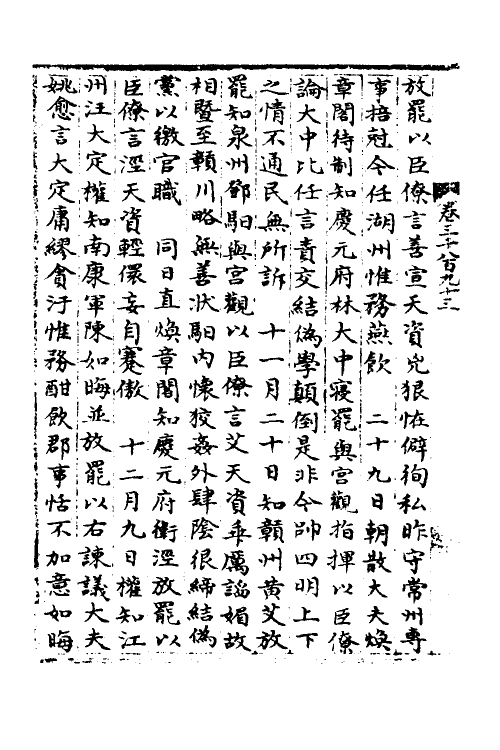 卷三千八百九十三
放罷以臣僚言善宣天資兇狠恠僻徇私昨守常州專
事掊尅今任湖州惟務燕飲　二十九日朝散大夫煥
章閣待制知慶元府林大中寢罷與宮觀指揮以臣僚
論大中比任言責交結偽學顛倒是非今帥四明上下
之情不通民無所訴　十一月二十日知贛州黃艾放
罷知泉州鄧馹與宮觀以臣僚言艾天資乖厲謟媚故
相暨至贛川略無善狀馹內懷狡姦外肆陰很締結偽
黨以繳官職　同日直煥章閣知慶元府衛涇放罷以
臣僚言涇天資輕儇妄自蹇傲　十二月九日權知江
州汪大定權知南康軍陳如晦並放罷以右諫議大夫
姚愈言大定庸繆貪汙惟務酣飲郡事恬不加意如晦